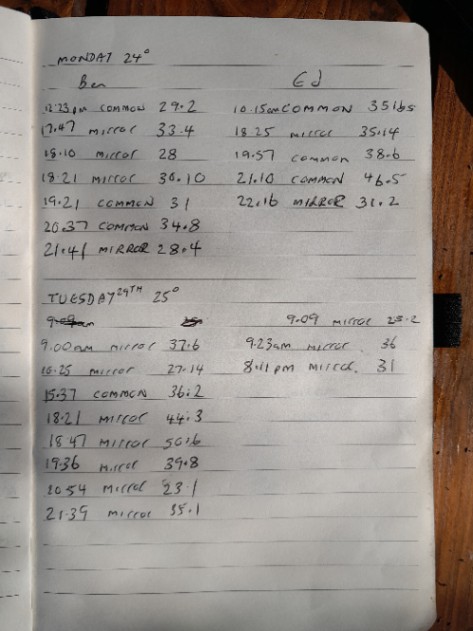 MONDAY 24°
Ben
12.23pm COMMON 29.2
17.47 mirror 33.4
18.10 mirror 28
18.21 mirror 30.10
19.21 COMMON 31
20.37 COMMON 34.8
21.41 MIRROR 28.4
Ed
10.15am COMMON 35lbs
18.25 mirror 35.14
19.57 common 38.6
21.10 COMMON 46.5
22.16 MIRROR 31.2
TUESDAY 29TH 25°
9.00am mirror 37.6
16.25 mirror 27.14
15.37 COMMON 36.2
18.21 mirror 44.3
18.47 mirror 50.6
19.36 mirror 39.8
20.54 mirror 23.1
21.39 mirror 35.1
9.09 mirror 25.2
9.23am mirror 36
8.11pm mirror. 31